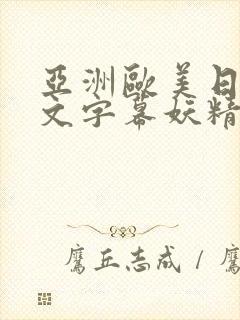 亞洲歐美日
文字幕妖精
鷹丘志成 / 鷹